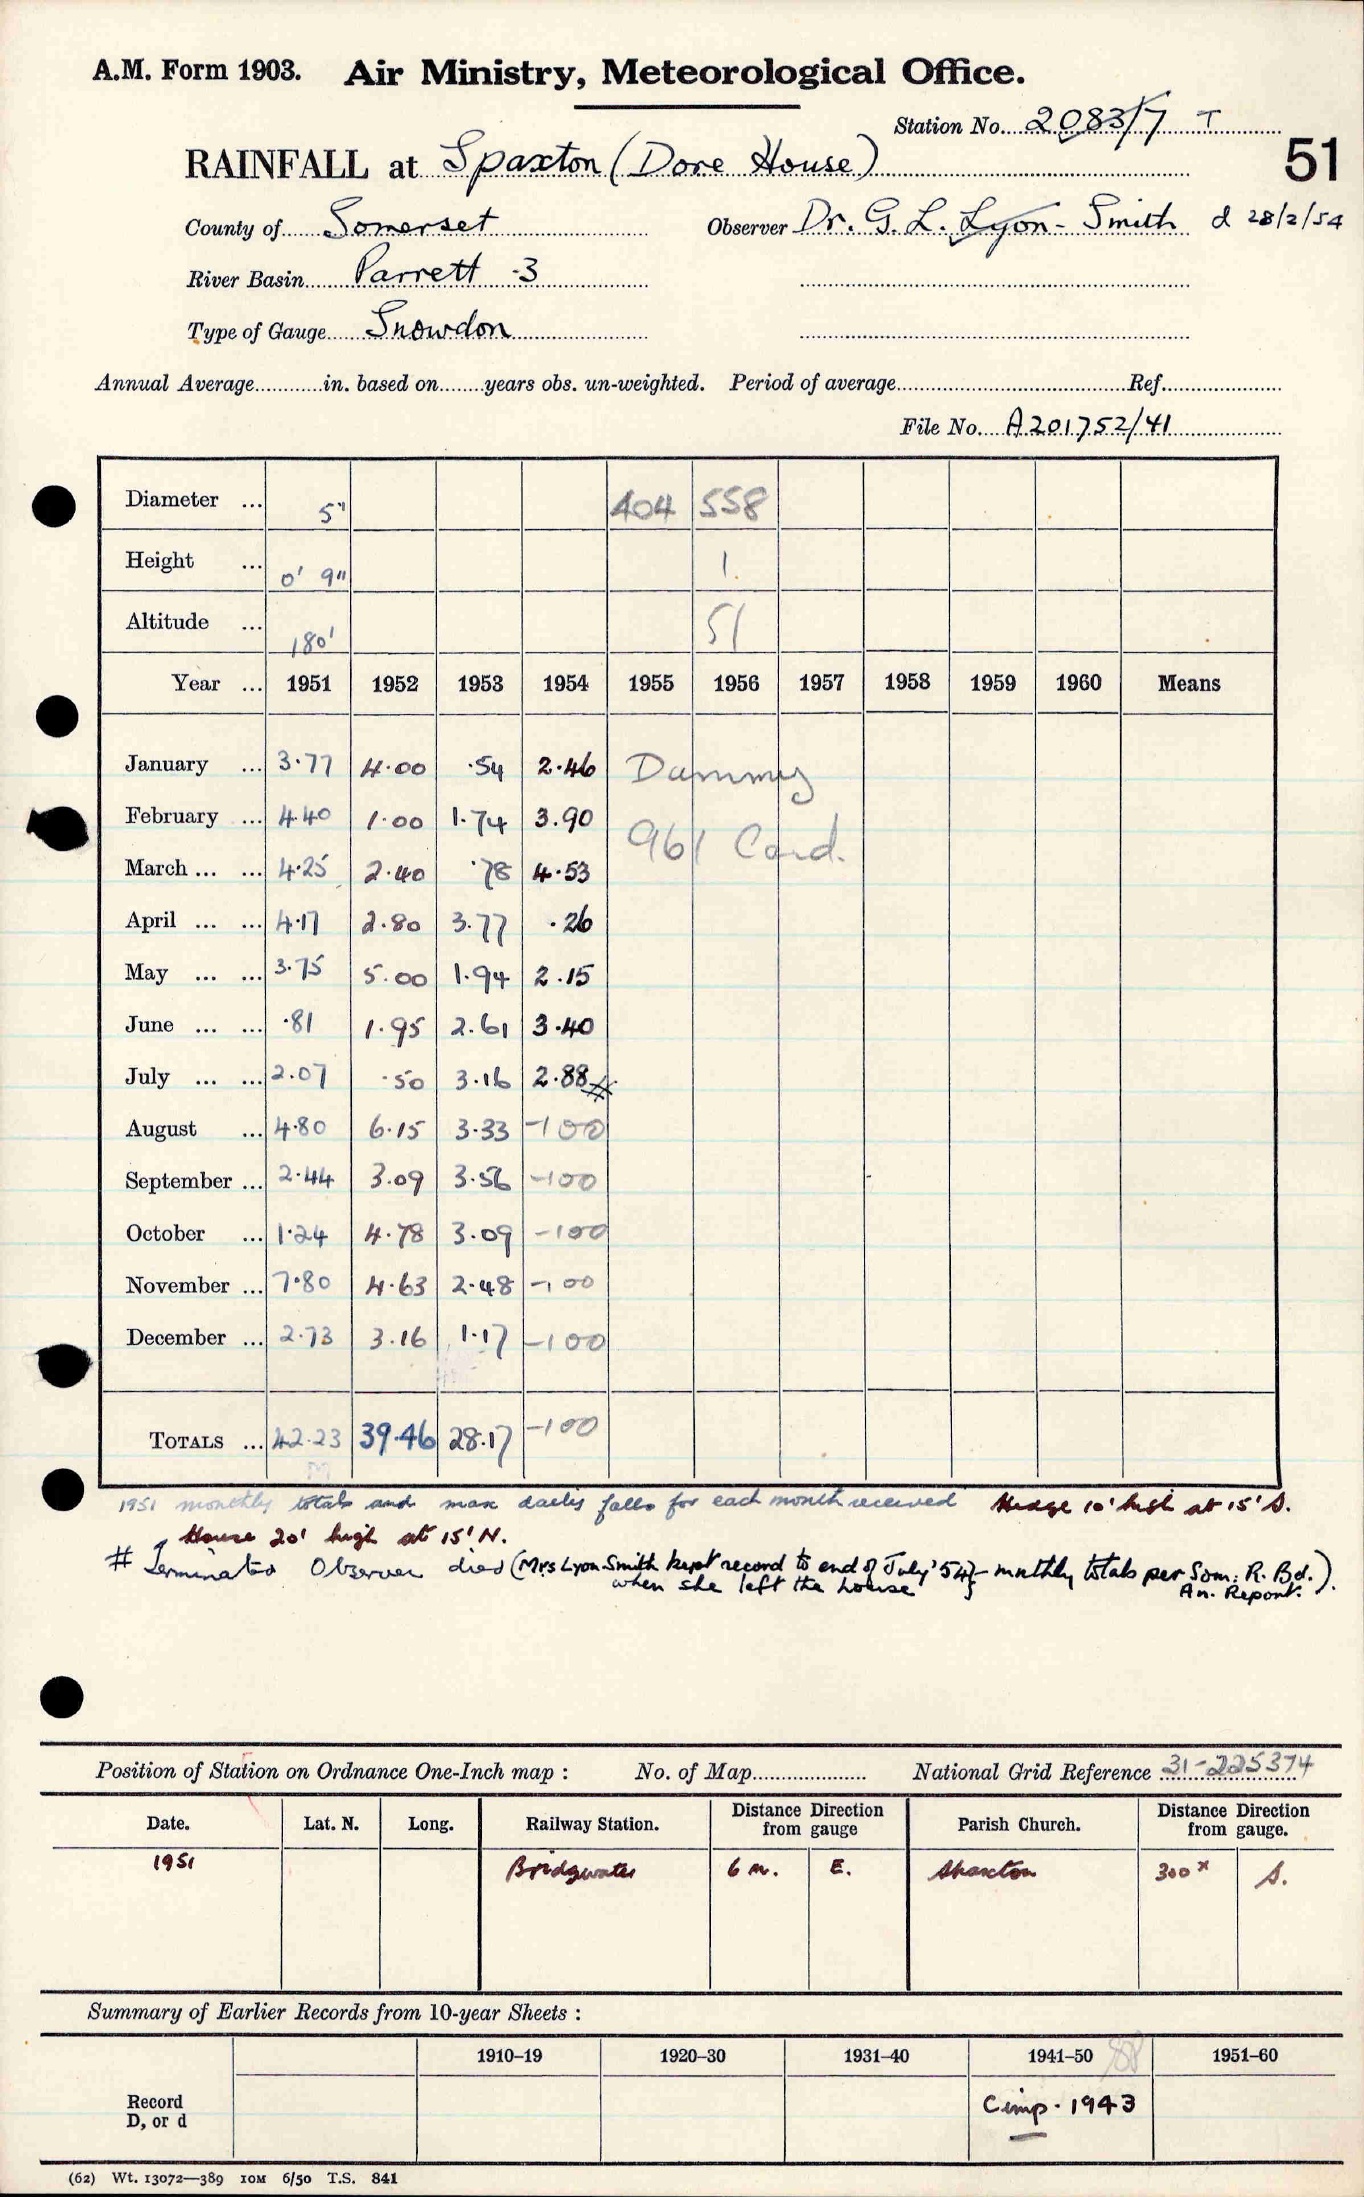 A.M. Form 1903. Air Ministry, Meteorological Office.
Station No. 2083/7 T
51
RAINFALL at Spaxton (Dore House)
County of Somerset Observer Dr. G. L. Lyon-Smith d 28/2/54
River Basin Parrett 3
Type of Gauge Snowdon
Annual Average in. based on years obs. un-weighted. Period of average Ref.
File No. A201752/41
Diameter ... 5" 404 558
Height ... 0' 9" 1
Altitude ... 180' 51
Year ... 1951 1952 1953 1954 1955 1956 1957 1958 1959 1960 Means
January ... 3.77 4.00 .54 2.46 Dummy
February ... 4.40 1.00 1.74 3.90 961 Card.
March ... ... 4.25 2.40 .78 4.53
April ... ... 4.17 2.80 3.77 .26
May ... ... 3.75 5.00 1.94 2.15
June ... ... .81 1.95 2.61 3.40
July ... ... 2.07 .50 3.16 2.88 #
August ... 4.80 6.15 3.33 -100
September ... 2.44 3.09 3.56 -100
October ... 1.24 4.78 3.09 -100
November ... 7.80 4.63 2.48 -100
December ... 2.73 3.16 1.17 -100
TOTALS ... 42.23 39.46 28.17 -100
1951 monthly totals and max daily falls for each month received Hedge 10' high at 15' S.
House 20' high at 15' N.
# Terminated Observer died (Mrs Lyon Smith kept record to end of July '54 - monthly totals per Som. R. Bd.
when she left the house An. Report.)
Position of Station on Ordnance One-Inch map : No. of Map National Grid Reference 31-225374
Date. Lat. N. Long. Railway Station. Distance Direction from gauge Parish Church. Distance Direction from gauge.
1951 Bridgwater 6 m. E. Spaxton 300x S.
Summary of Earlier Records from 10-year Sheets :
1910–19 1920–30 1931–40 1941–50 1951–60
Record
D, or d
Cimp. 1943
(62) Wt. 13072—389 10M 6/50 T.S. 841